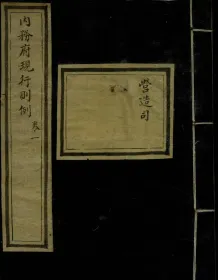 內務府現行則例 卷一
營造司